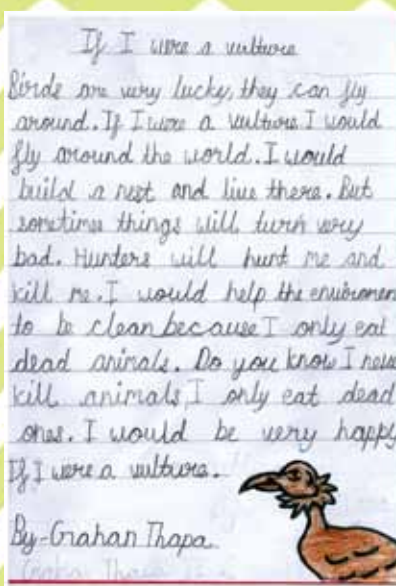 If I were a vulture
Birds are very lucky, they can fly
around. If I were a vulture I would
fly around the world. I would
build a nest and live there. But
sometimes things will turn very
bad. Hunters will hunt me and
kill me. I would help the enviromen
to be clean because I only eat
dead animals. Do you know I neve
kill animals, I only eat dead
ones. I would be very happy
If I were a vulture.
By-Grahan Thapa
Grahan Thapa